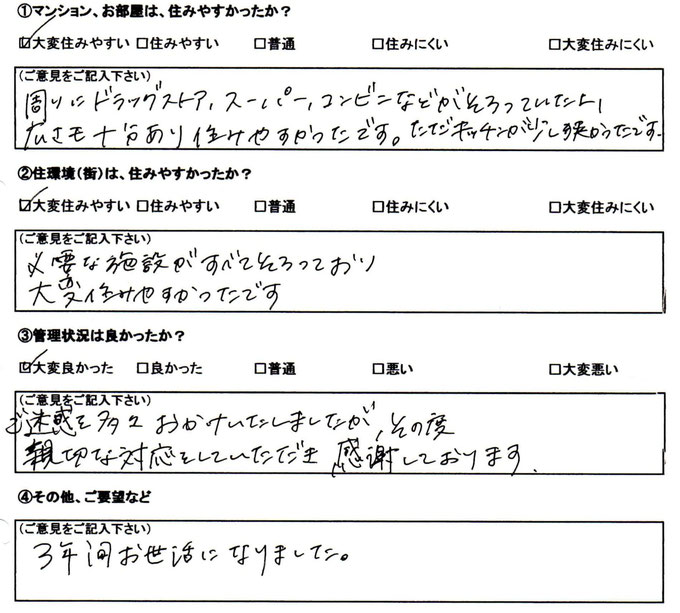 ①マンション、お部屋は、住みやすかったか？
☑大変住みやすい □住みやすい □普通 □住みにくい □大変住みにくい
(ご意見をご記入下さい)
周りにドラッグストア、スーパー、コンビニなどがそろっていたし、
広さも十分あり住みやすかったです。ただキッチンが少し狭かったです。
②住環境（街）は、住みやすかったか？
☑大変住みやすい □住みやすい □普通 □住みにくい □大変住みにくい
(ご意見をご記入下さい)
必要な施設がすべてそろっており
大変住みやすかったです
③管理状況は良かったか？
☑大変良かった □良かった □普通 □悪い □大変悪い
(ご意見をご記入下さい)
ご迷惑を多々おかけいたしましたが、その度
親切な対応をしていただき感謝しております。
④その他、ご要望など
(ご意見をご記入下さい)
3年間お世話になりました。